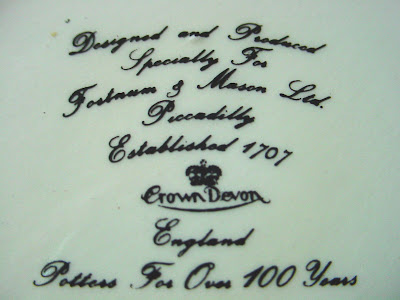 Designed and Produced
Specially For
Fortnum & Mason Ltd.
Piccadilly
Established 1707
Crown Devon
England
Potters For Over 100 Years